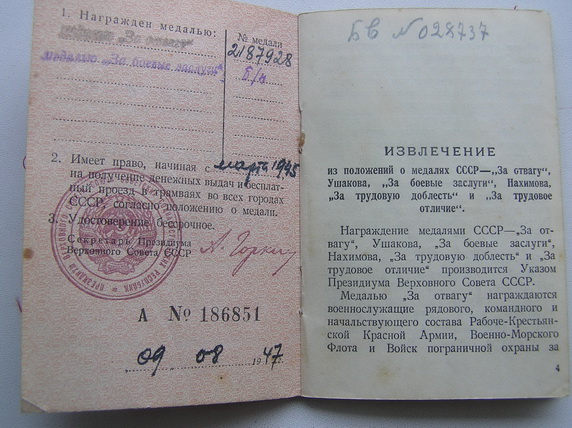 1. Награжден медалью:
№ медали
медалью „За отвагу“
2187928
медалью „За боевые заслуги“
б/н
2. Имеет право, начиная с марта 1945
на получение денежных выдач и бесплат-
ный проезд в трамваях во всех городах
СССР, согласно положению о медали.
3. Удостоверение бессрочное.
Секретарь Президиума
Верховного Совета СССР
А. Горкин
А № 186851
09 08 1947
БВ № 028737
ИЗВЛЕЧЕНИЕ
из положений о медалях СССР—„За отвагу“,
Ушакова, „За боевые заслуги“, Нахимова,
„За трудовую доблесть“ и „За трудовое
отличие“.
Награждение медалями СССР—„За от-
вагу“, Ушакова, „За боевые заслуги“,
Нахимова, „За трудовую доблесть“ и „За
трудовое отличие“ производится Указом
Президиума Верховного Совета СССР.
Медалью „За отвагу“ награждаются
военнослужащие рядового, командного и
начальствующего состава Рабоче-Крестьян-
ской Красной Армии, Военно-Морского
Флота и Войск пограничной охраны за
4